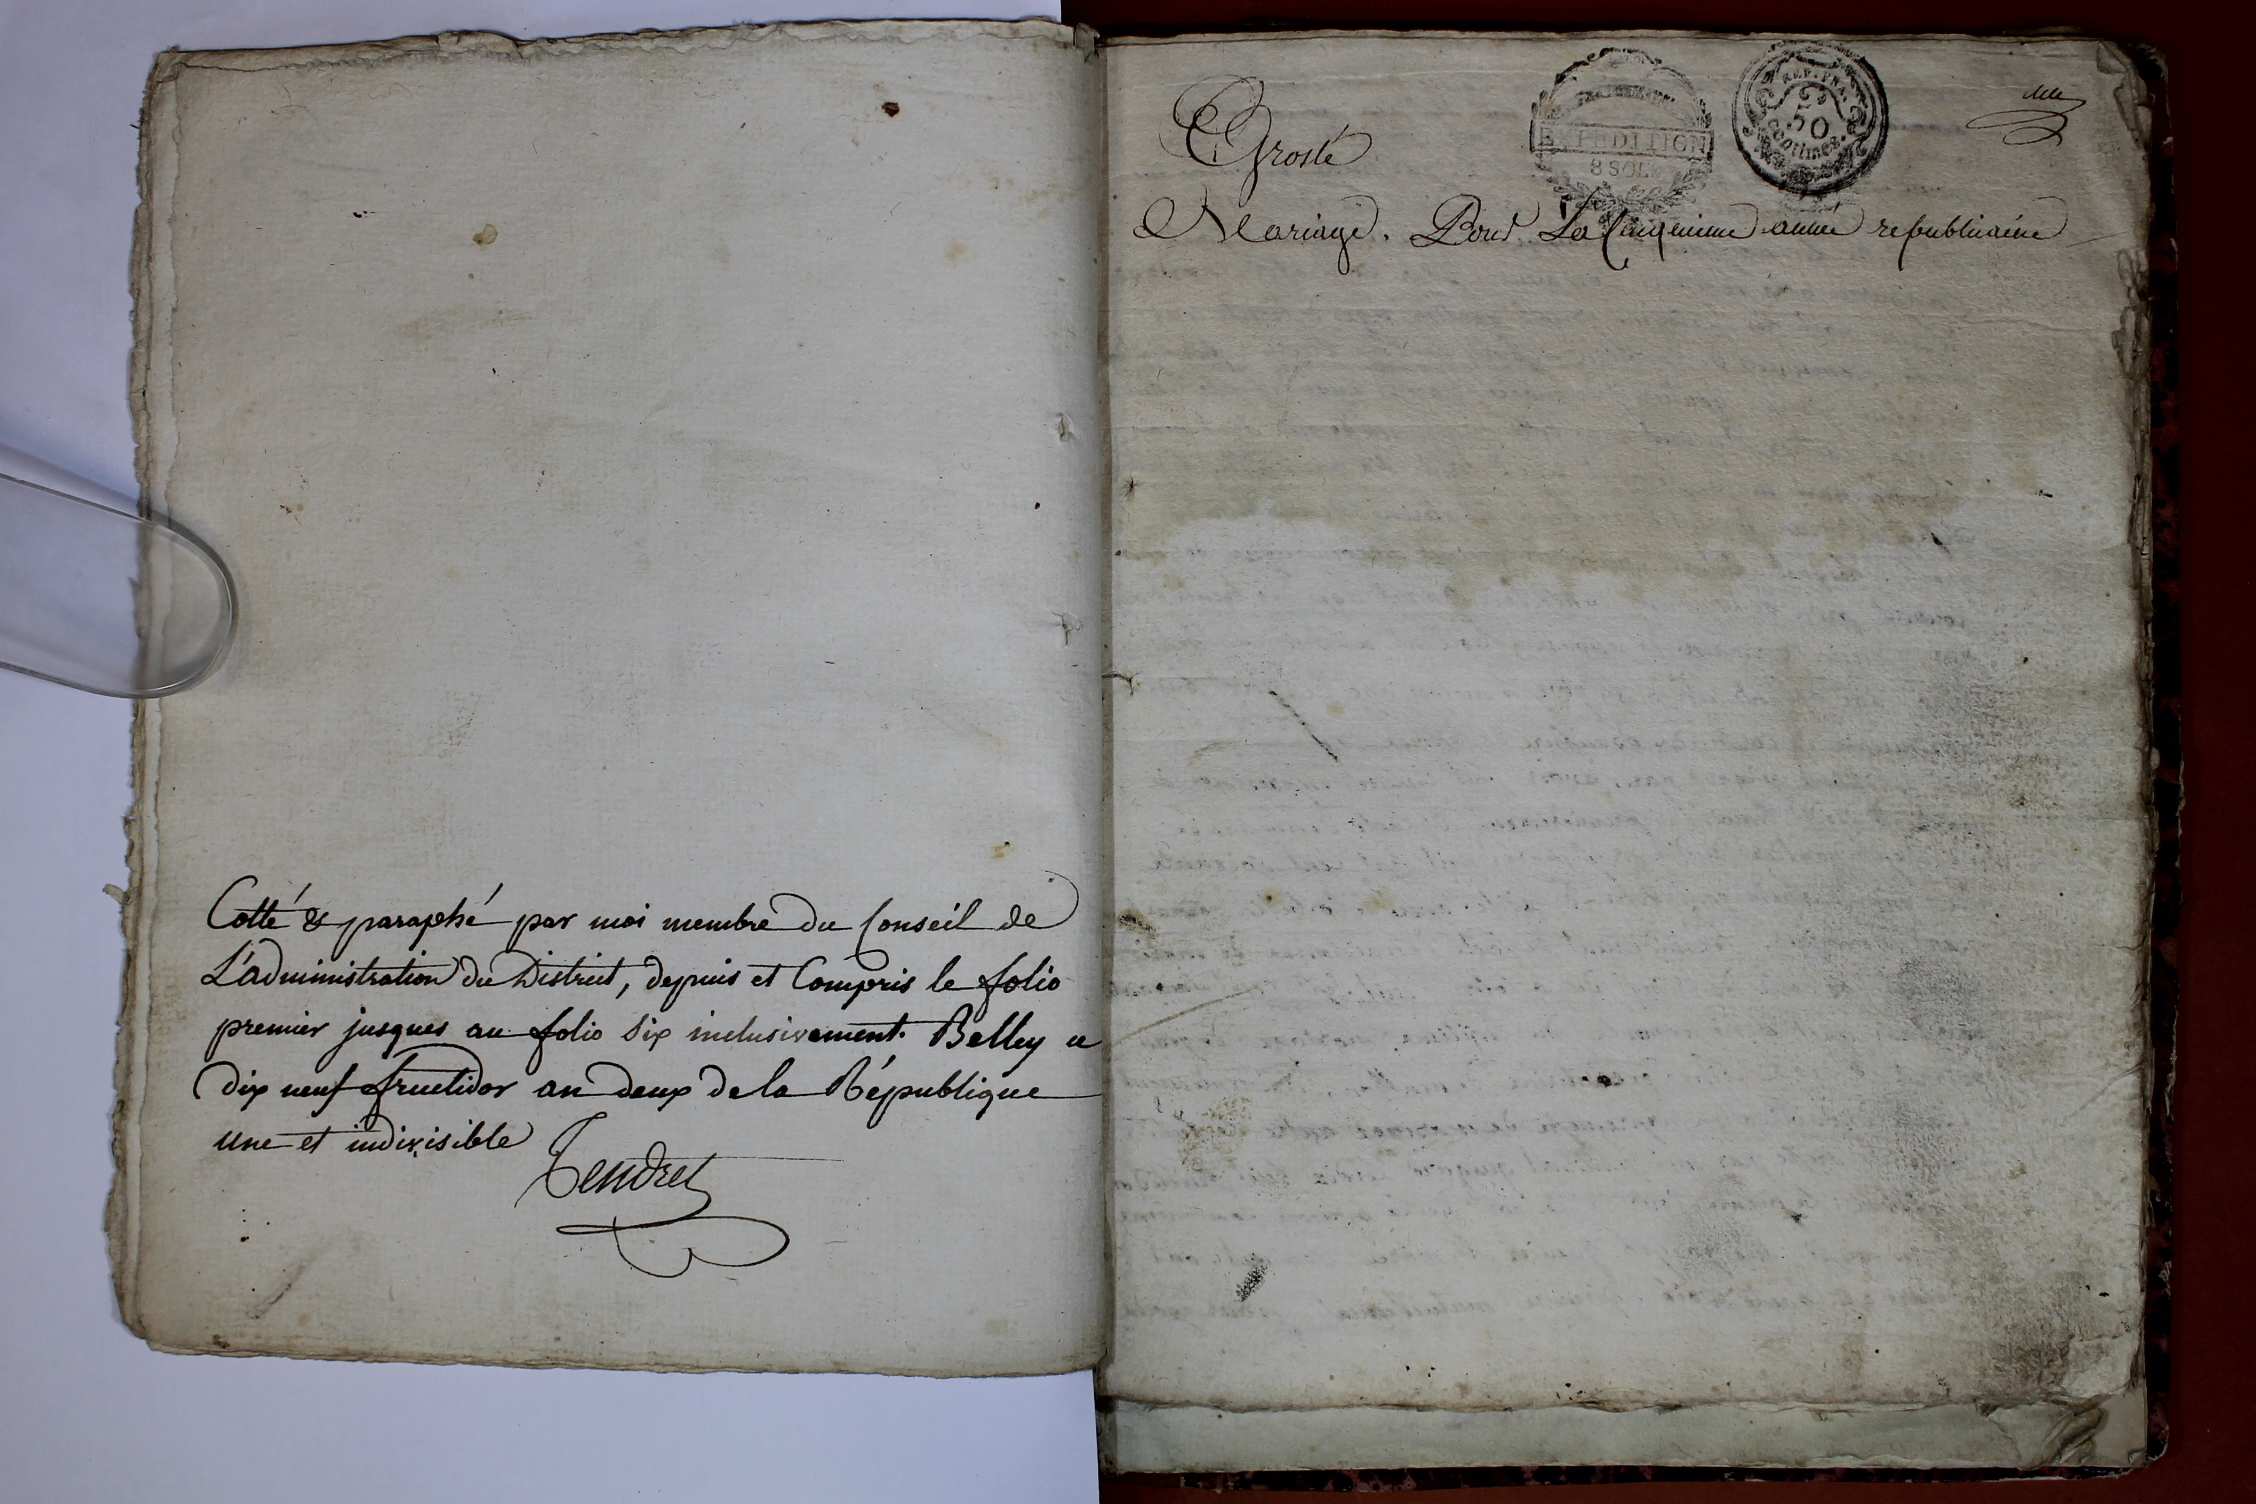 Cotté & paraphé par moi membre du Conseil de
L'administration du District, depuis et Compris le folio
premier jusques au folio six inclusivement. Belley ce
dix neuf fructidor an deux de la République
une et indivisible
Tendret
EXPEDITION
8 SOLS
REP. FRA.
50
centimes
Groslé
Mariage. Pour La Cinquieme année republicaine